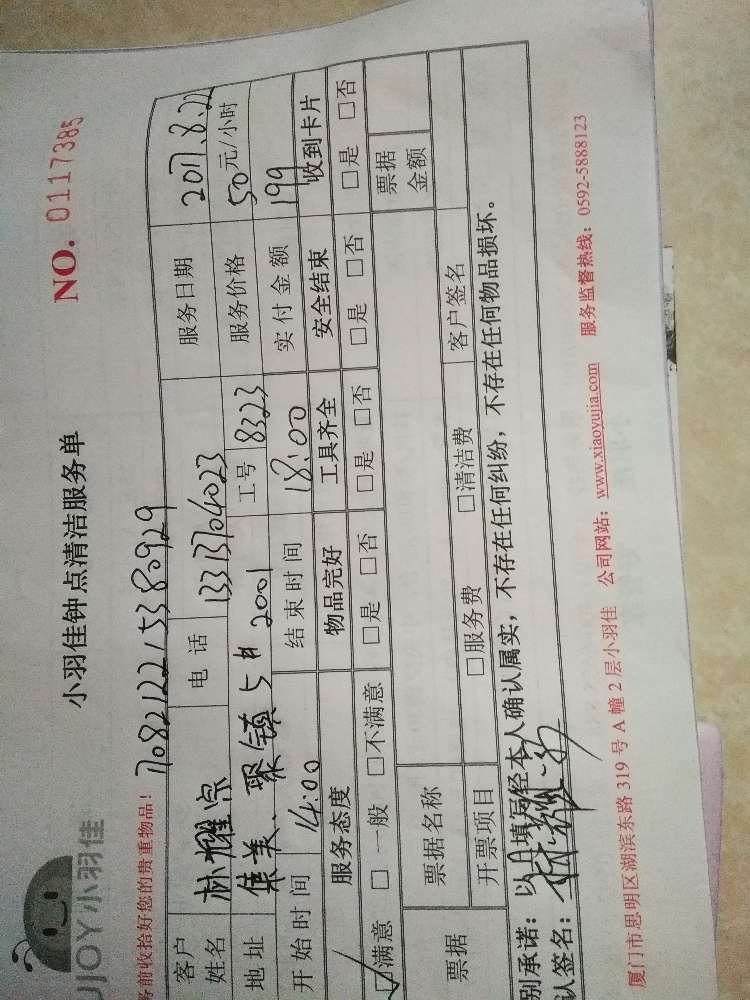 UJOY小羽佳
小羽佳钟点清洁服务单
NO. 0117385
务前收拾好您的贵重物品！ 170821221538 0929
客户姓名 林耀宗 电 话 13313704023 服务日期 2017.8.22
地 址 集美、聚镇5# 2001 工号 8323 服务价格 50元/小时
开 始 时 间 14:00 结 束 时 间 18:00 实 付 金 额 199
服务态度 物品完好 工具齐全 安全结束 收到卡片
☑满意 □ 一般 □不满意 □是 □否 □是 □否 □是 □否 □是 □否
票据 票据名称 票据金额
开票项目 □服务费 □清洁费 客户签名
别承诺：以上填写经本人确认属实，不存在任何纠纷，不存在任何物品损坏。
认签名：
厦门市思明区湖滨东路 319 号 A 幢 2 层小羽佳 公司网站：www.xiaoyujia.com 服务监督热线：0592-5888123